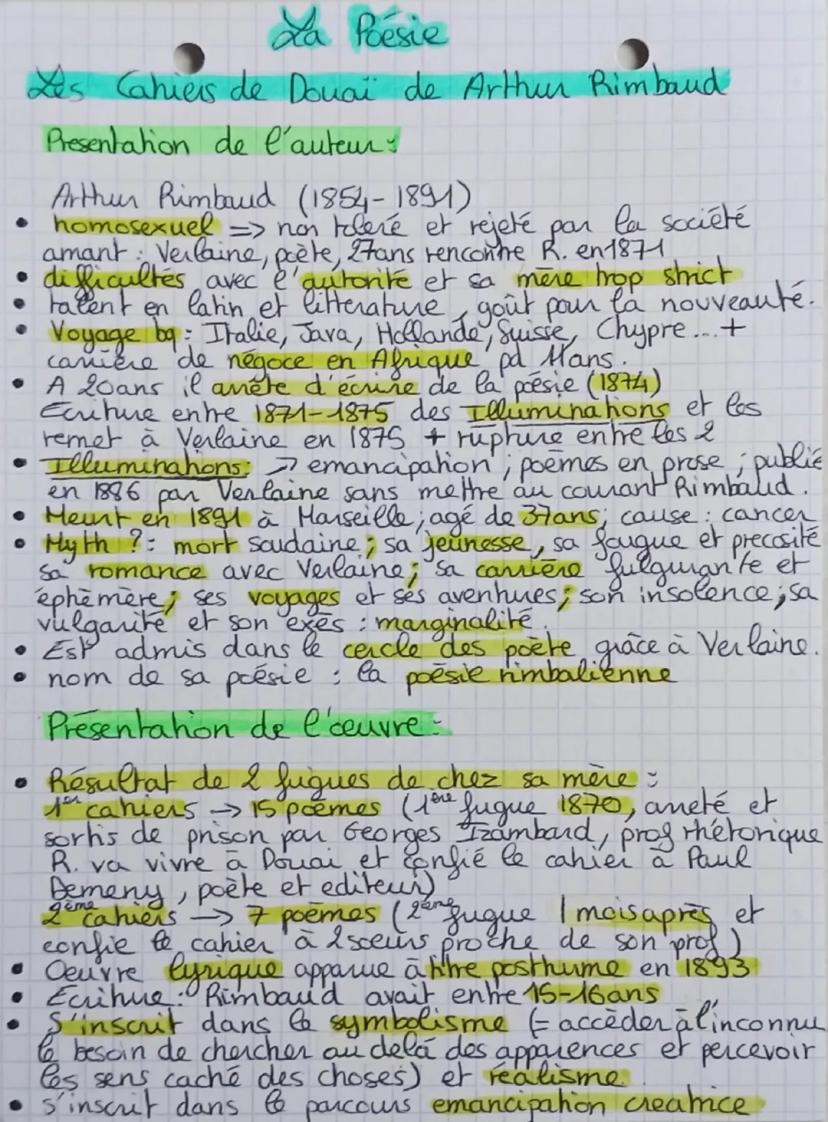 La Poésie
Les Cahiers de Douaï de Arthur Rimbaud
Presentation de l'auteur :
Arthur Rimbaud (1854-1891)
• homosexuel => non toleré et rejeté par la société
amant : Verlaine, poète, 27ans rencontre R. en 1871
• difficultés avec l'autorité et sa mère trop strict
• talent en latin et litterature, goût pour la nouveauté.
• Voyage bq : Italie, Java, Hollande, Suisse, Chypre ... +
carrière de négoce en Afrique pd 11ans.
• A 20ans il arrête d'écrire de la poésie (1874)
Ecriture entre 1871-1875 des Illuminations et les
remet à Verlaine en 1875 + rupture entre les 2
• Illuminations: -> emancipation ; poèmes en prose ; publié
en 1886 par Verlaine sans mettre au courant Rimbaud.
• Meurt en 1891 à Marseille; agé de 37ans; cause : cancer
• Myth ? : mort soudaine ; sa jeunesse, sa fougue et precosité
sa romance avec Verlaine ; sa carrière fulgurante et
éphèmère ; ses voyages et ses aventures ; son insolence ; sa
vulgarité et son exès : marginalité.
• Est admis dans le cercle des poète grâce à Verlaine.
• nom de sa poésie : la poésie rimbalienne
Présentation de l'œuvre :
• Résultat de 2 fugues de chez sa mère :
1er cahiers -> 15 poèmes (1ère fugue 1870, arreté et
sortis de prison par Georges Izambard, prof rhétorique
R. va vivre à Douai et confié le cahier à Paul
Demeny, poète et editeur)
2ème cahiers -> 7 poèmes (2ème fugue 1 mois après et
confie le cahier à 2 soeurs proche de son prof)
• Oeuvre lyrique apparue à titre posthume en 1893
• Ecriture : Rimbaud avait entre 15-16ans
• S'inscrit dans le symbolisme (= accèder à l'inconnu
le besoin de chercher au delà des apparences et percevoir
les sens caché des choses) et réalisme.
• s'inscrit dans le parcours emancipation creatrice